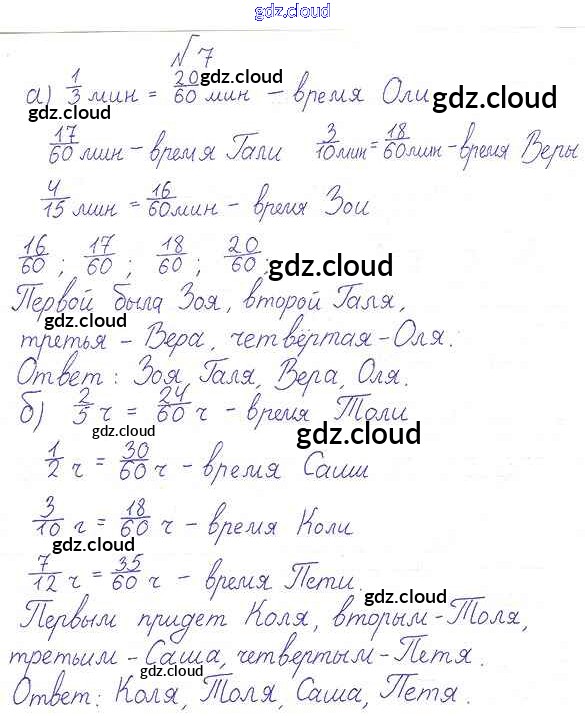 gdz.cloud
№7
а) 1/3 мин = 20/60 мин - время Оли
gdz.cloud
gdz.cloud
gdz.cloud
17/60 мин - время Гали 3/10 мин = 18/60 мин - время Веры
4/15 мин = 16/60 мин - время Зои
16/60 ; 17/60 ; 18/60 ; 20/60 ;
gdz.cloud
Первой была Зоя, второй Галя,
gdz.cloud
третья - Вера, четвёртая - Оля.
Ответ: Зоя, Галя, Вера, Оля.
gdz.cloud
б) 2/5 ч = 24/60 ч - время Толи
gdz.cloud
gdz.cloud
1/2 ч = 30/60 ч - время Саши
3/10 ч = 18/60 ч - время Коли
gdz.cloud
7/12 ч = 35/60 ч - время Пети.
gdz.cloud
Первым придет Коля, вторым - Толя,
третьим - Саша, четвертым - Петя.
gdz.cloud
Ответ: Коля, Толя, Саша, Петя.
gdz.cloud